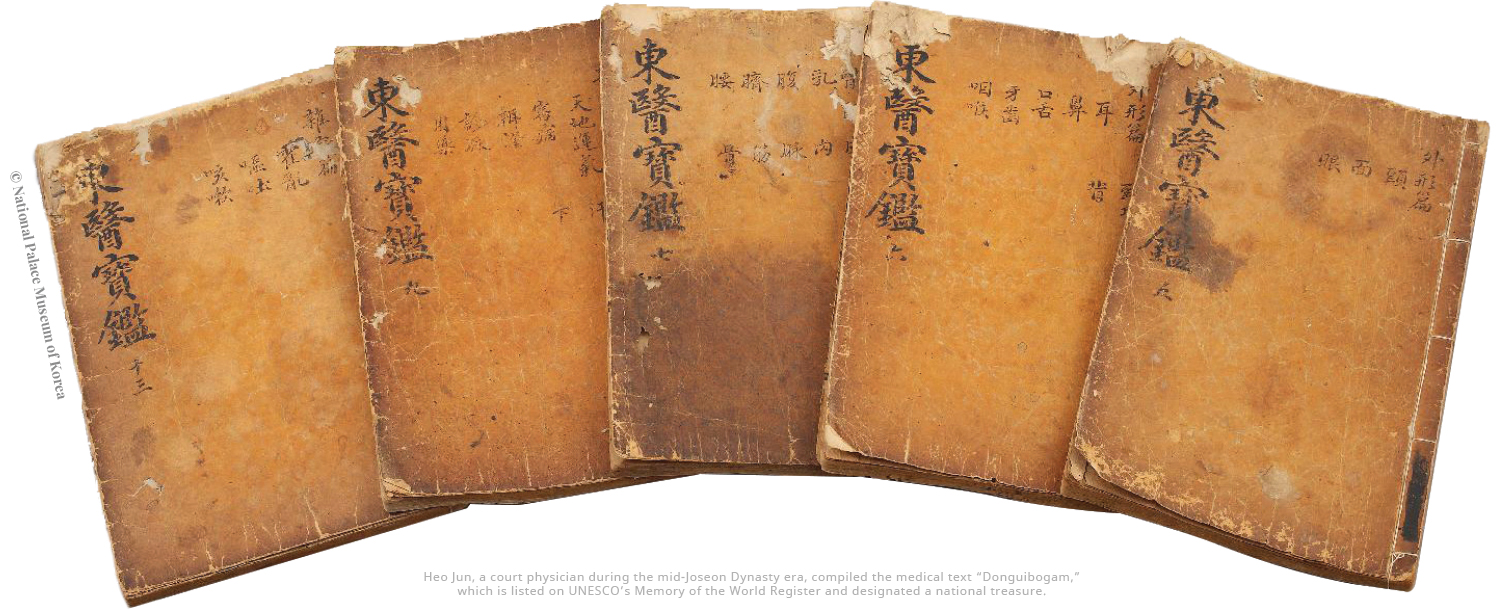 東醫寶鑑
十三
雜病篇
霍亂
嘔吐
咳嗽
東醫寶鑑
九
天地運氣
審病
辨證
診脈
用藥
汗
下
東醫寶鑑
七
乳
腹
臍
腰
肉
脉
筋
骨
東醫寶鑑
六
外形篇
耳
鼻
口舌
牙齒
咽喉
背
東醫寶鑑
五
外形篇
頭
面
眼
© National Palace Museum of Korea
Heo Jun, a court physician during the mid-Joseon Dynasty era, compiled the medical text “Donguibogam,”
which is listed on UNESCO’s Memory of the World Register and designated a national treasure.